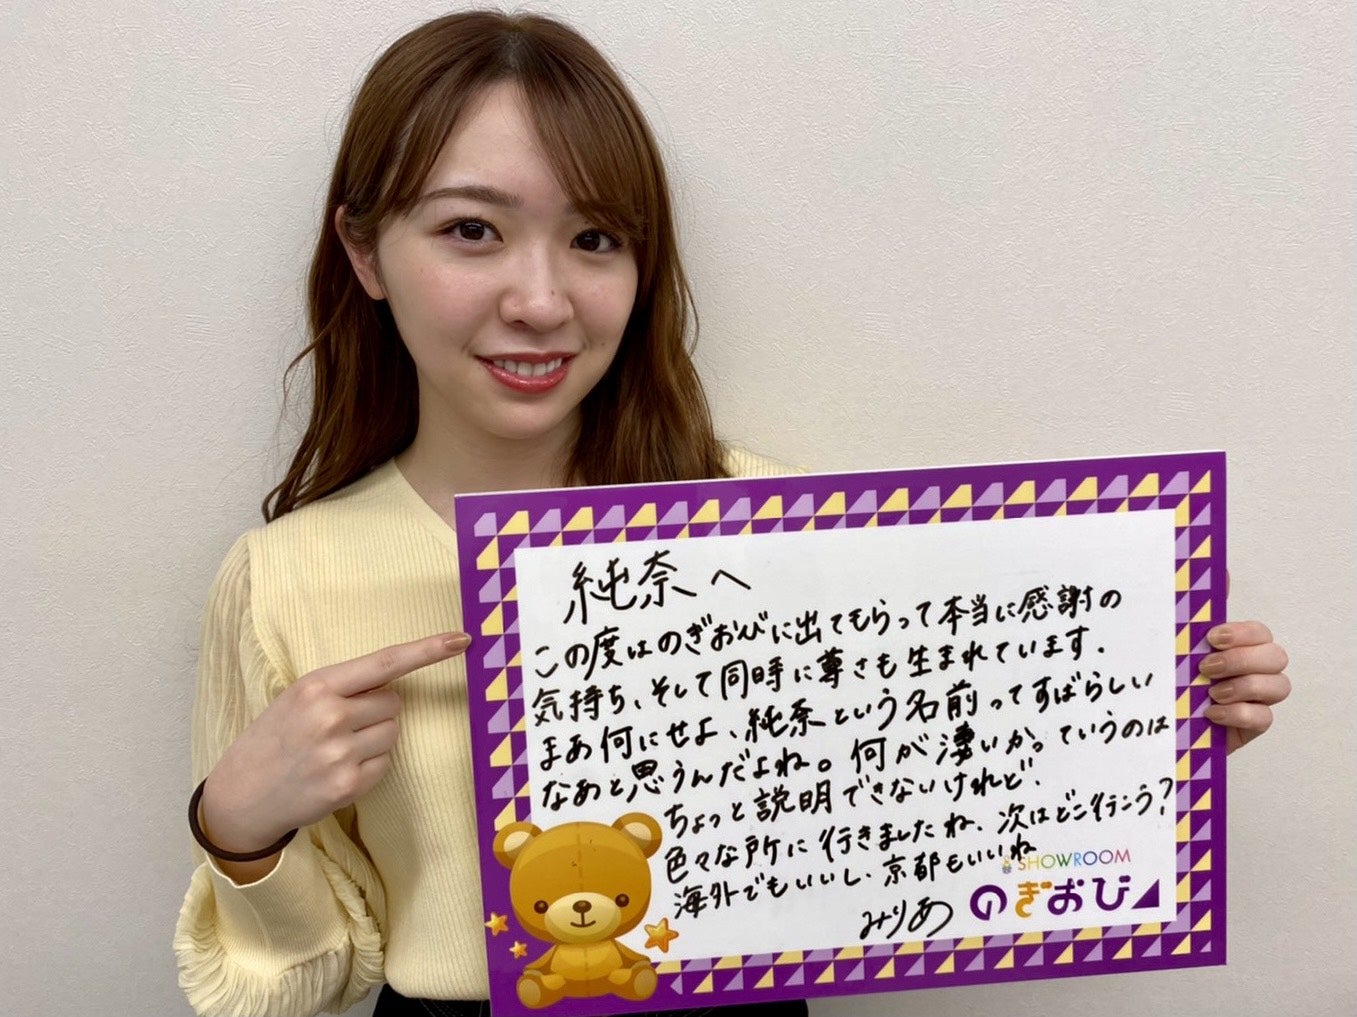 純奈へ
この度はのぎおびに出てもらって本当に感謝の
気持ち、そして同時に尊さも生まれています.
まあ何にせよ、純奈という名前ってすばらしい
なあと思うんだよね。何が凄いか。ていうのは
ちょっと説明できないけれど.
色々な所に行きましたね、次はどこ行こう?
海外でもいいし、京都もいいね
SHOWROOM
みりあ
のぎおび